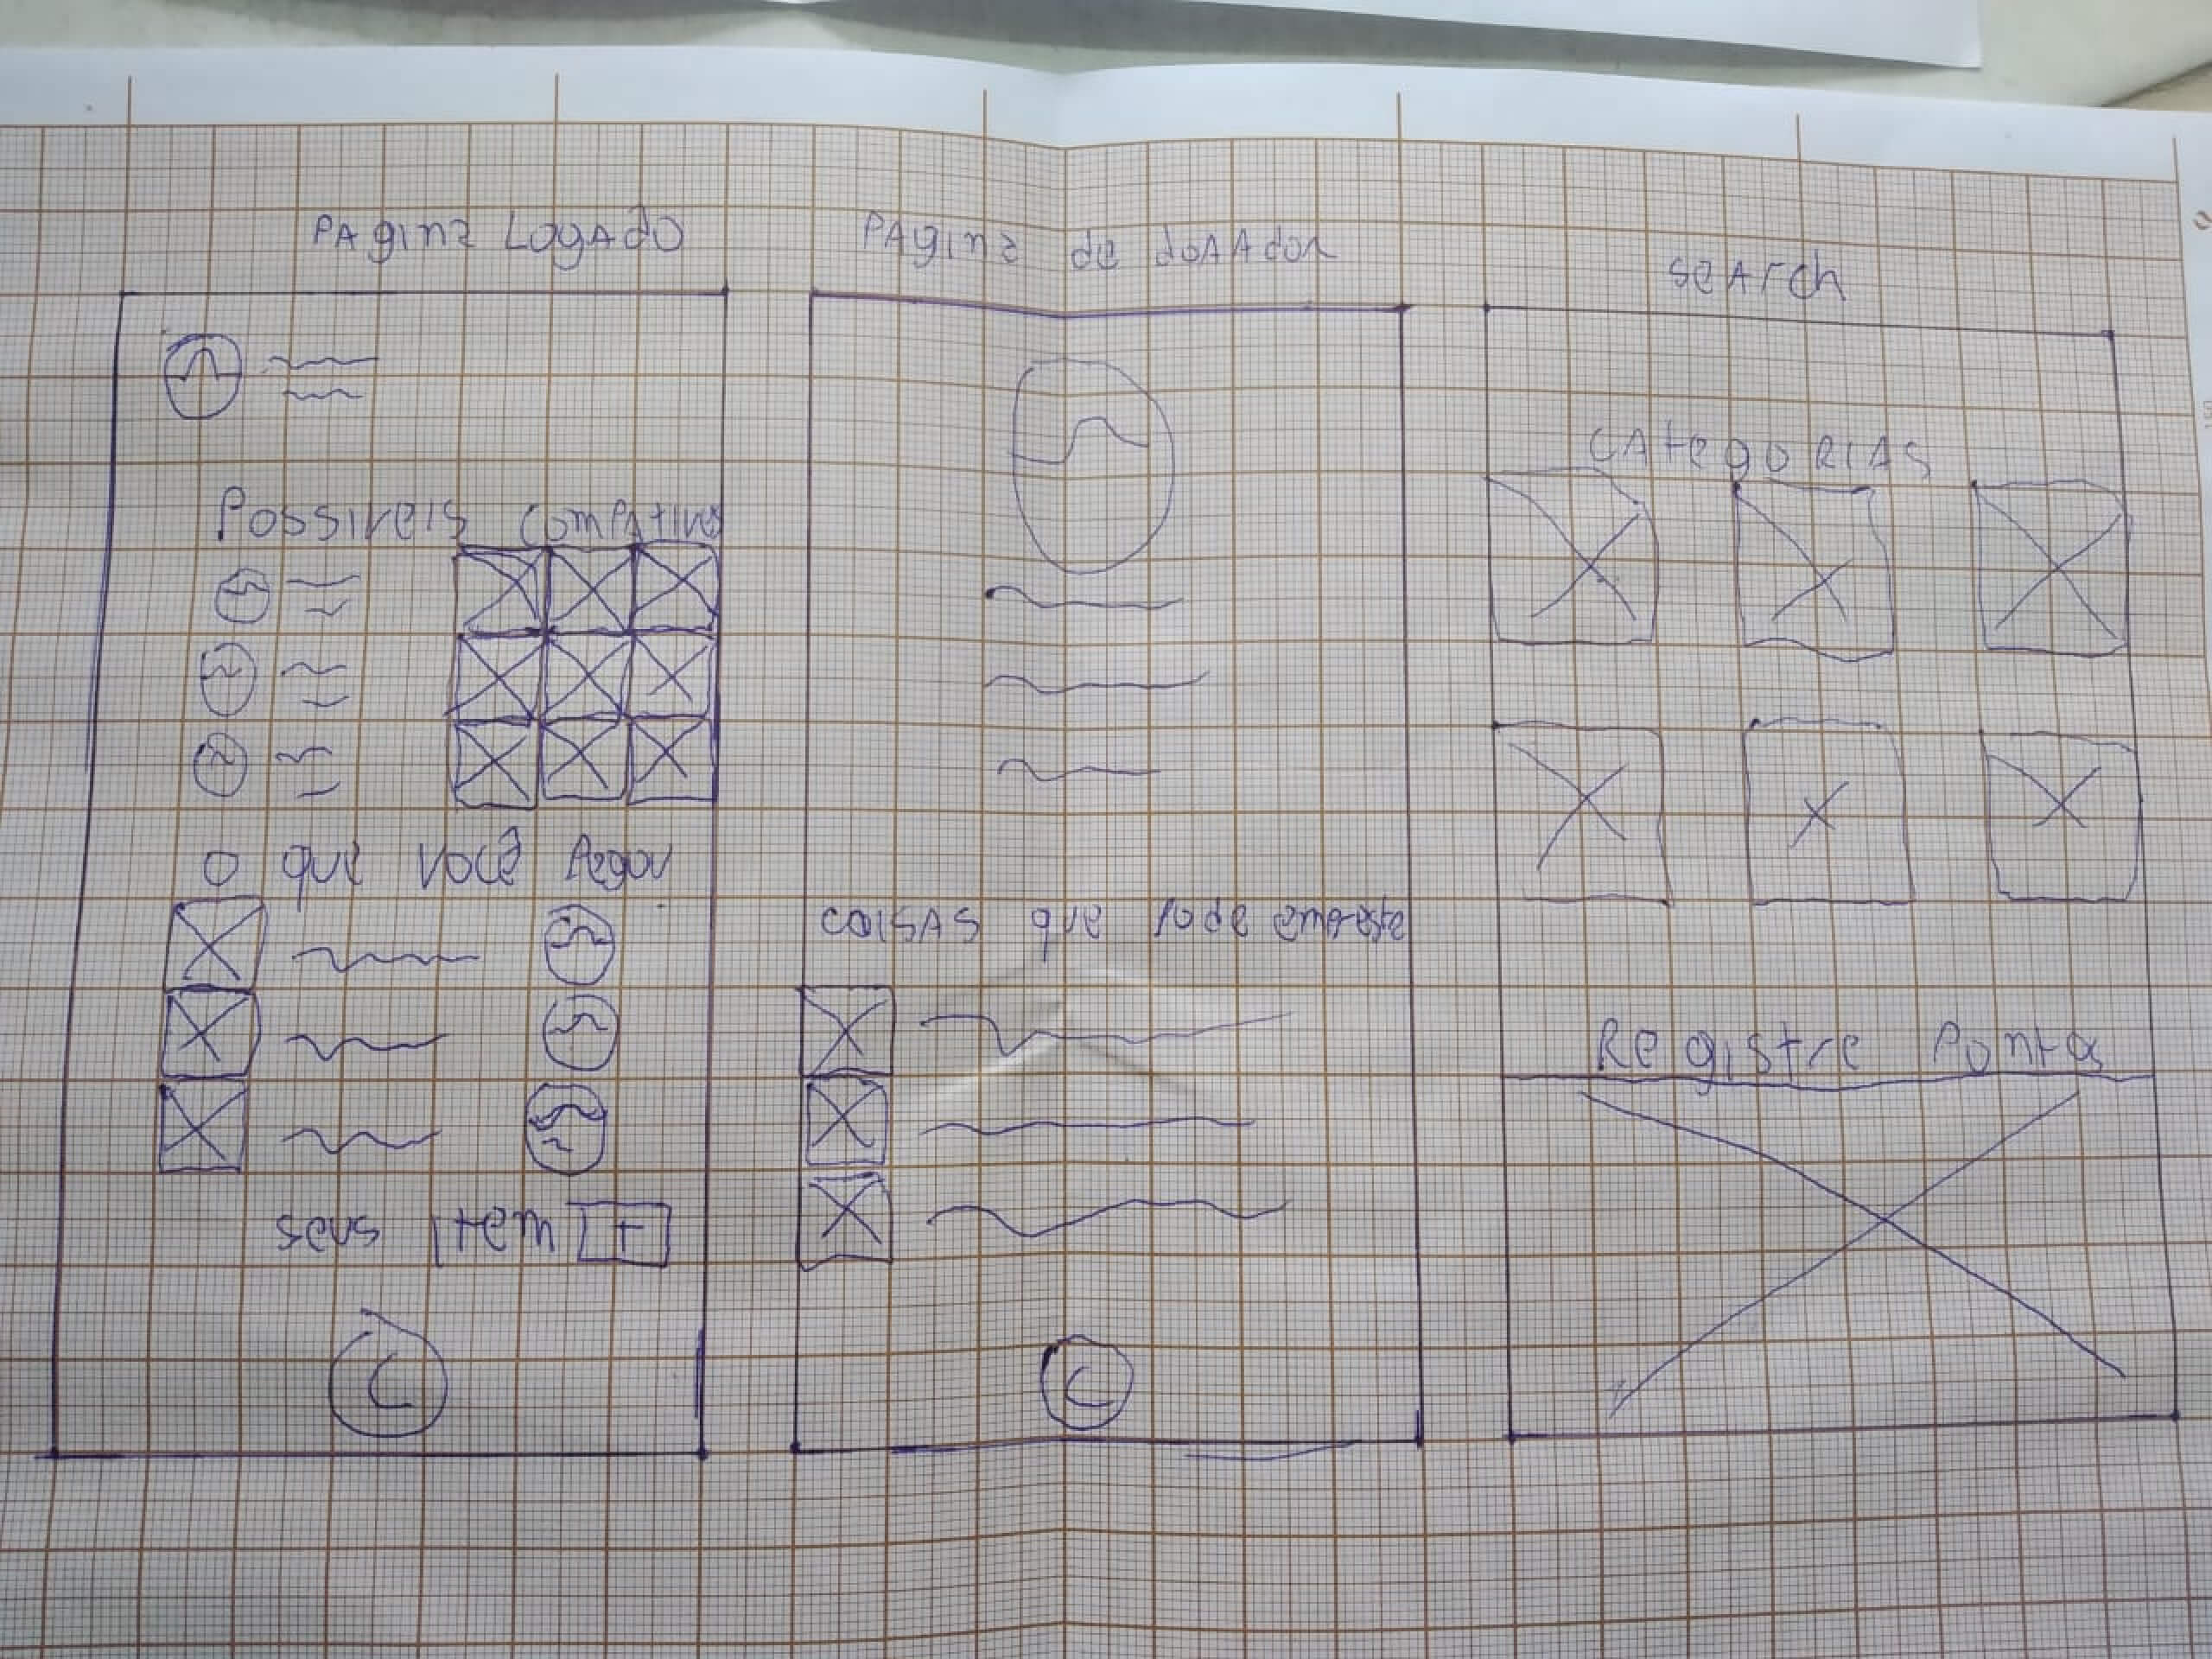 PAgina LogAdo
Possiveis compAtives
o que você Pegou
seus Item +
C
PAgina de doAAdor
coisAS que Pode empreste
C
seArch
CAtegoRIAS
Registre Pontos